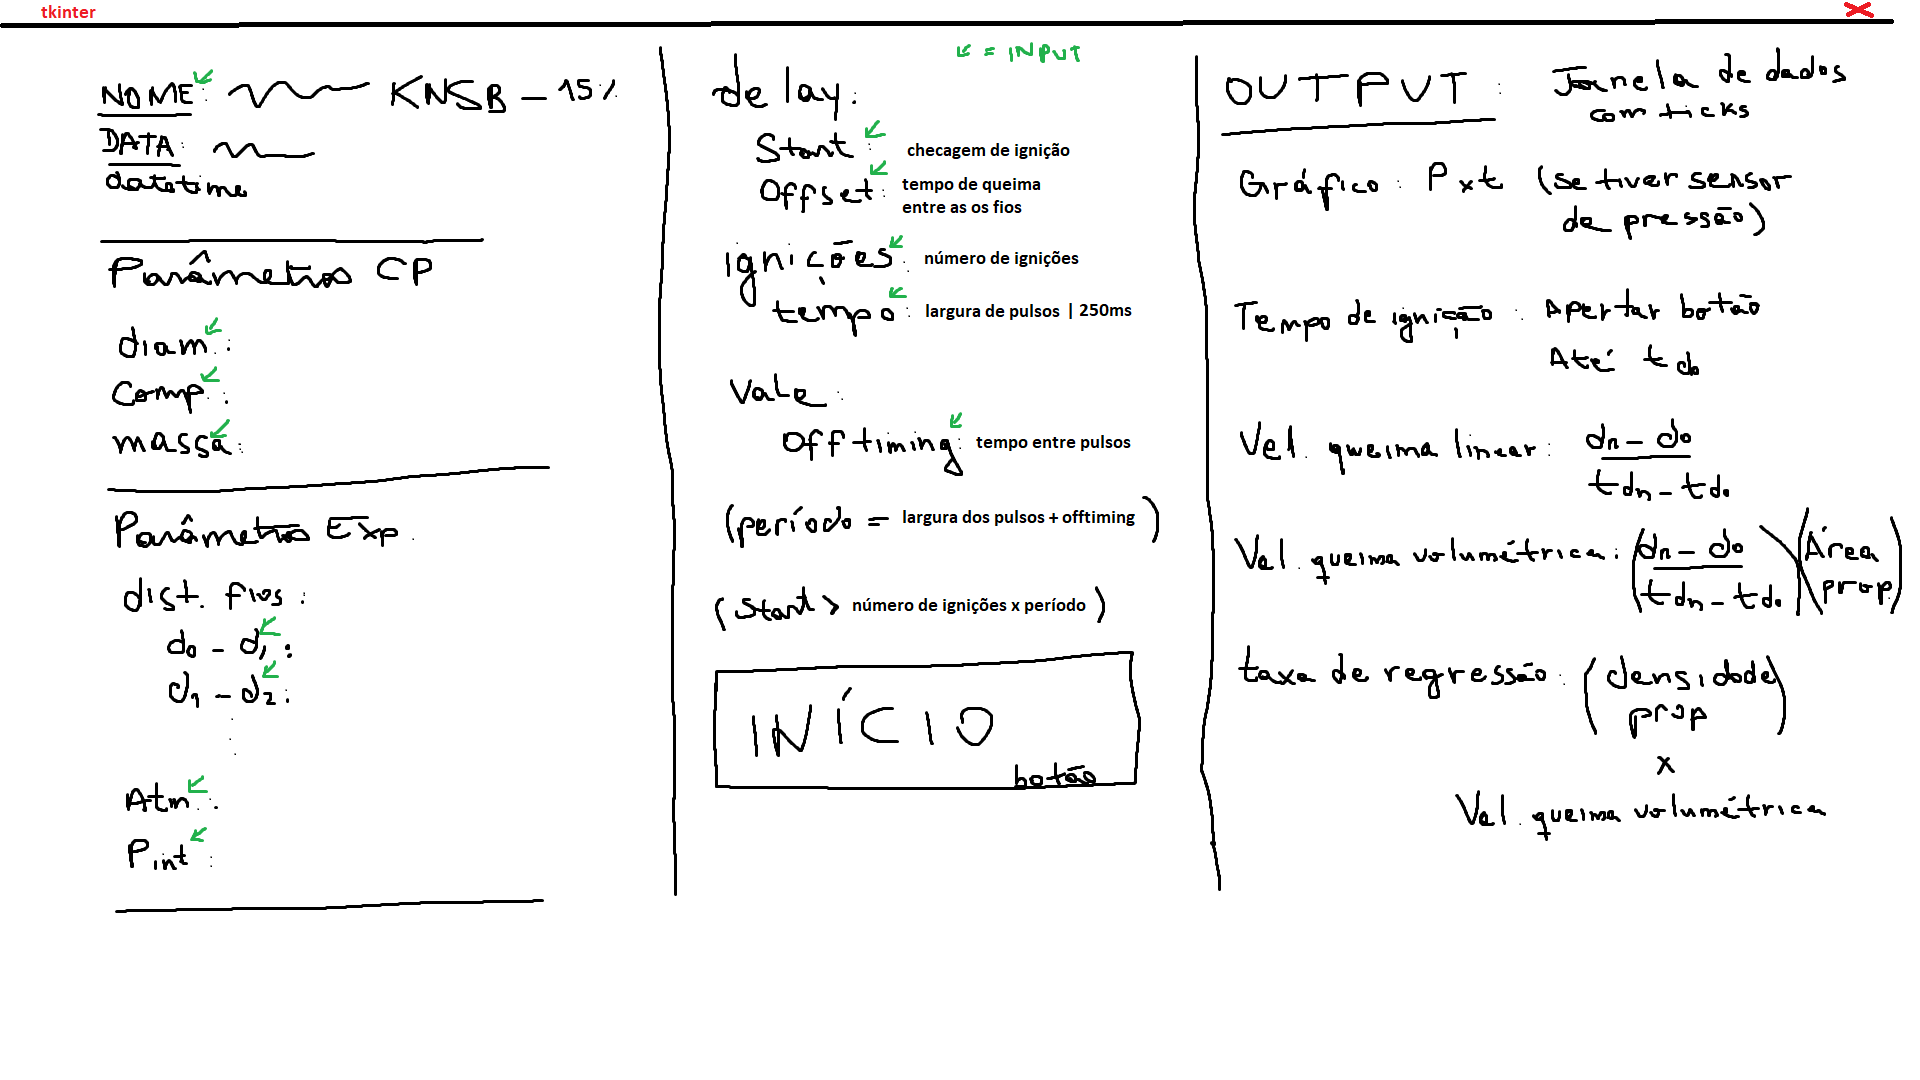 tkinter
NOME: KNSB - 15%
DATA:
datetime
Parâmetros CP
diam:
Comp:
massa:
Parâmetros Exp.
dist. fios:
d0 - d1:
d1 - d2:
Atm:
Pint:
= INPUT
delay:
Start: checagem de ignição
Offset: tempo de queima
entre as os fios
ignições: número de ignições
tempo: largura de pulsos | 250ms
Vale:
Off timing: tempo entre pulsos
(período = largura dos pulsos + offtiming)
(Start > número de ignições x período)
INÍCIO
botão
OUTPUT: Janela de dados
com ticks
Gráfico: P x t (se tiver sensor
de pressão)
Tempo de ignição: Apertar botão
Até t d0
Vel. queima linear: dn - d0
tdn - td0
Vel. queima volumétrica: (dn - d0) (Área
tdn - td0 prop)
taxa de regressão: (densidade
prop)
x
Vel. queima volumétrica